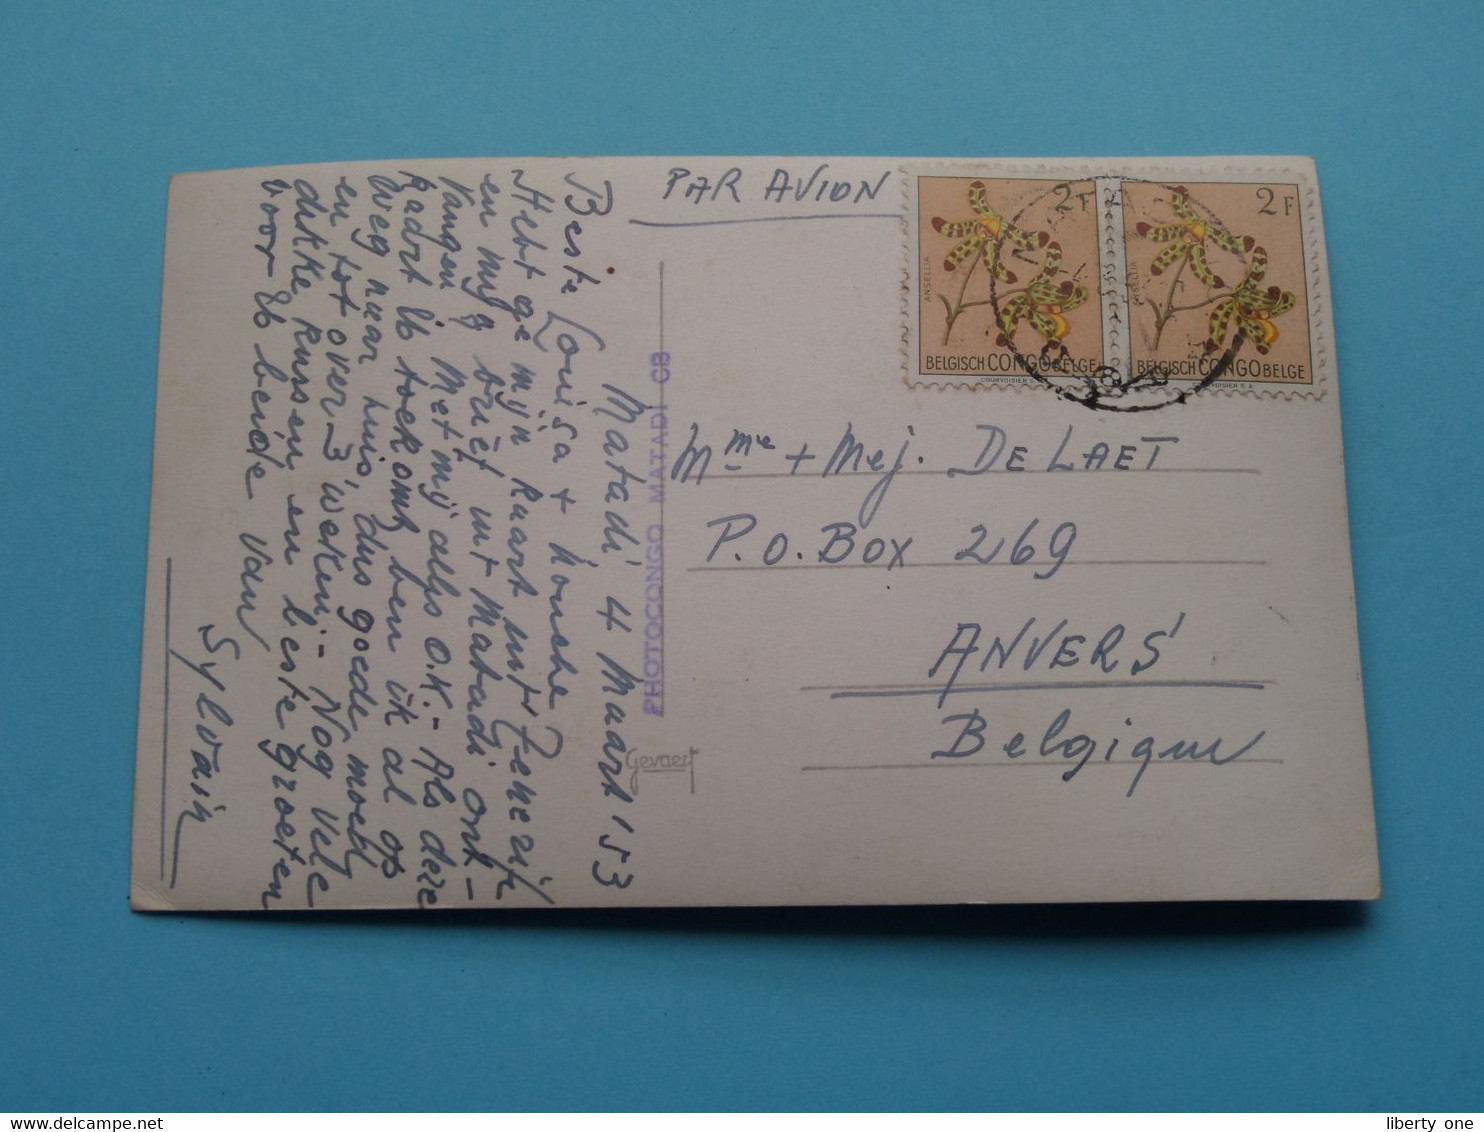 Matadi 4 Maart '53
Beste Louisa + Nonske
Hebt ge mijn kaart uit Tenerife
en mijn brief uit Matadi ont-
vangen. Met mij alles O.K. - Als deze
kaart U toekomt ben ik al op
weg naar huis, dus goede moed
en tot over 3 weken - Nog vele
dikke kussen en beste groeten
voor U beide van
Sylvain
PHOTOCONGO MATADI CB
Gevaert
PAR AVION
2F
ANSELLIA
BELGISCH CONGO BELGE
COURVOISIER S.
2F
ANSELLIA
BELGISCH CONGO BELGE
VOISIER S.A
Mme + Mej. DE LAET
P.O. Box 269
ANVERS
Belgique
liberty one